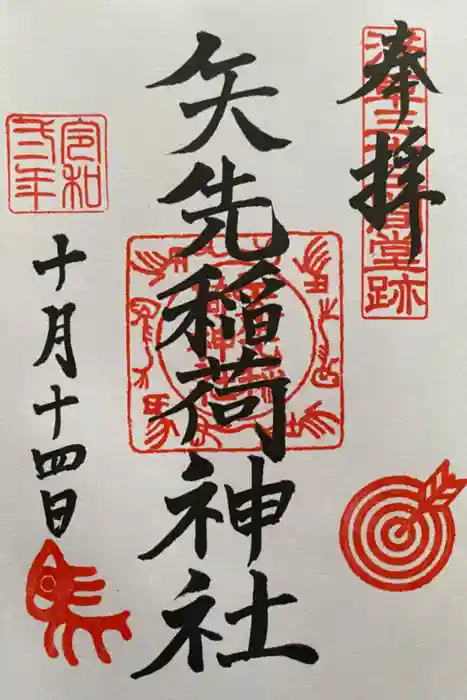 奉拝
浅草三十三間堂跡
矢先稲荷神社
令和
弐年
十月十四日